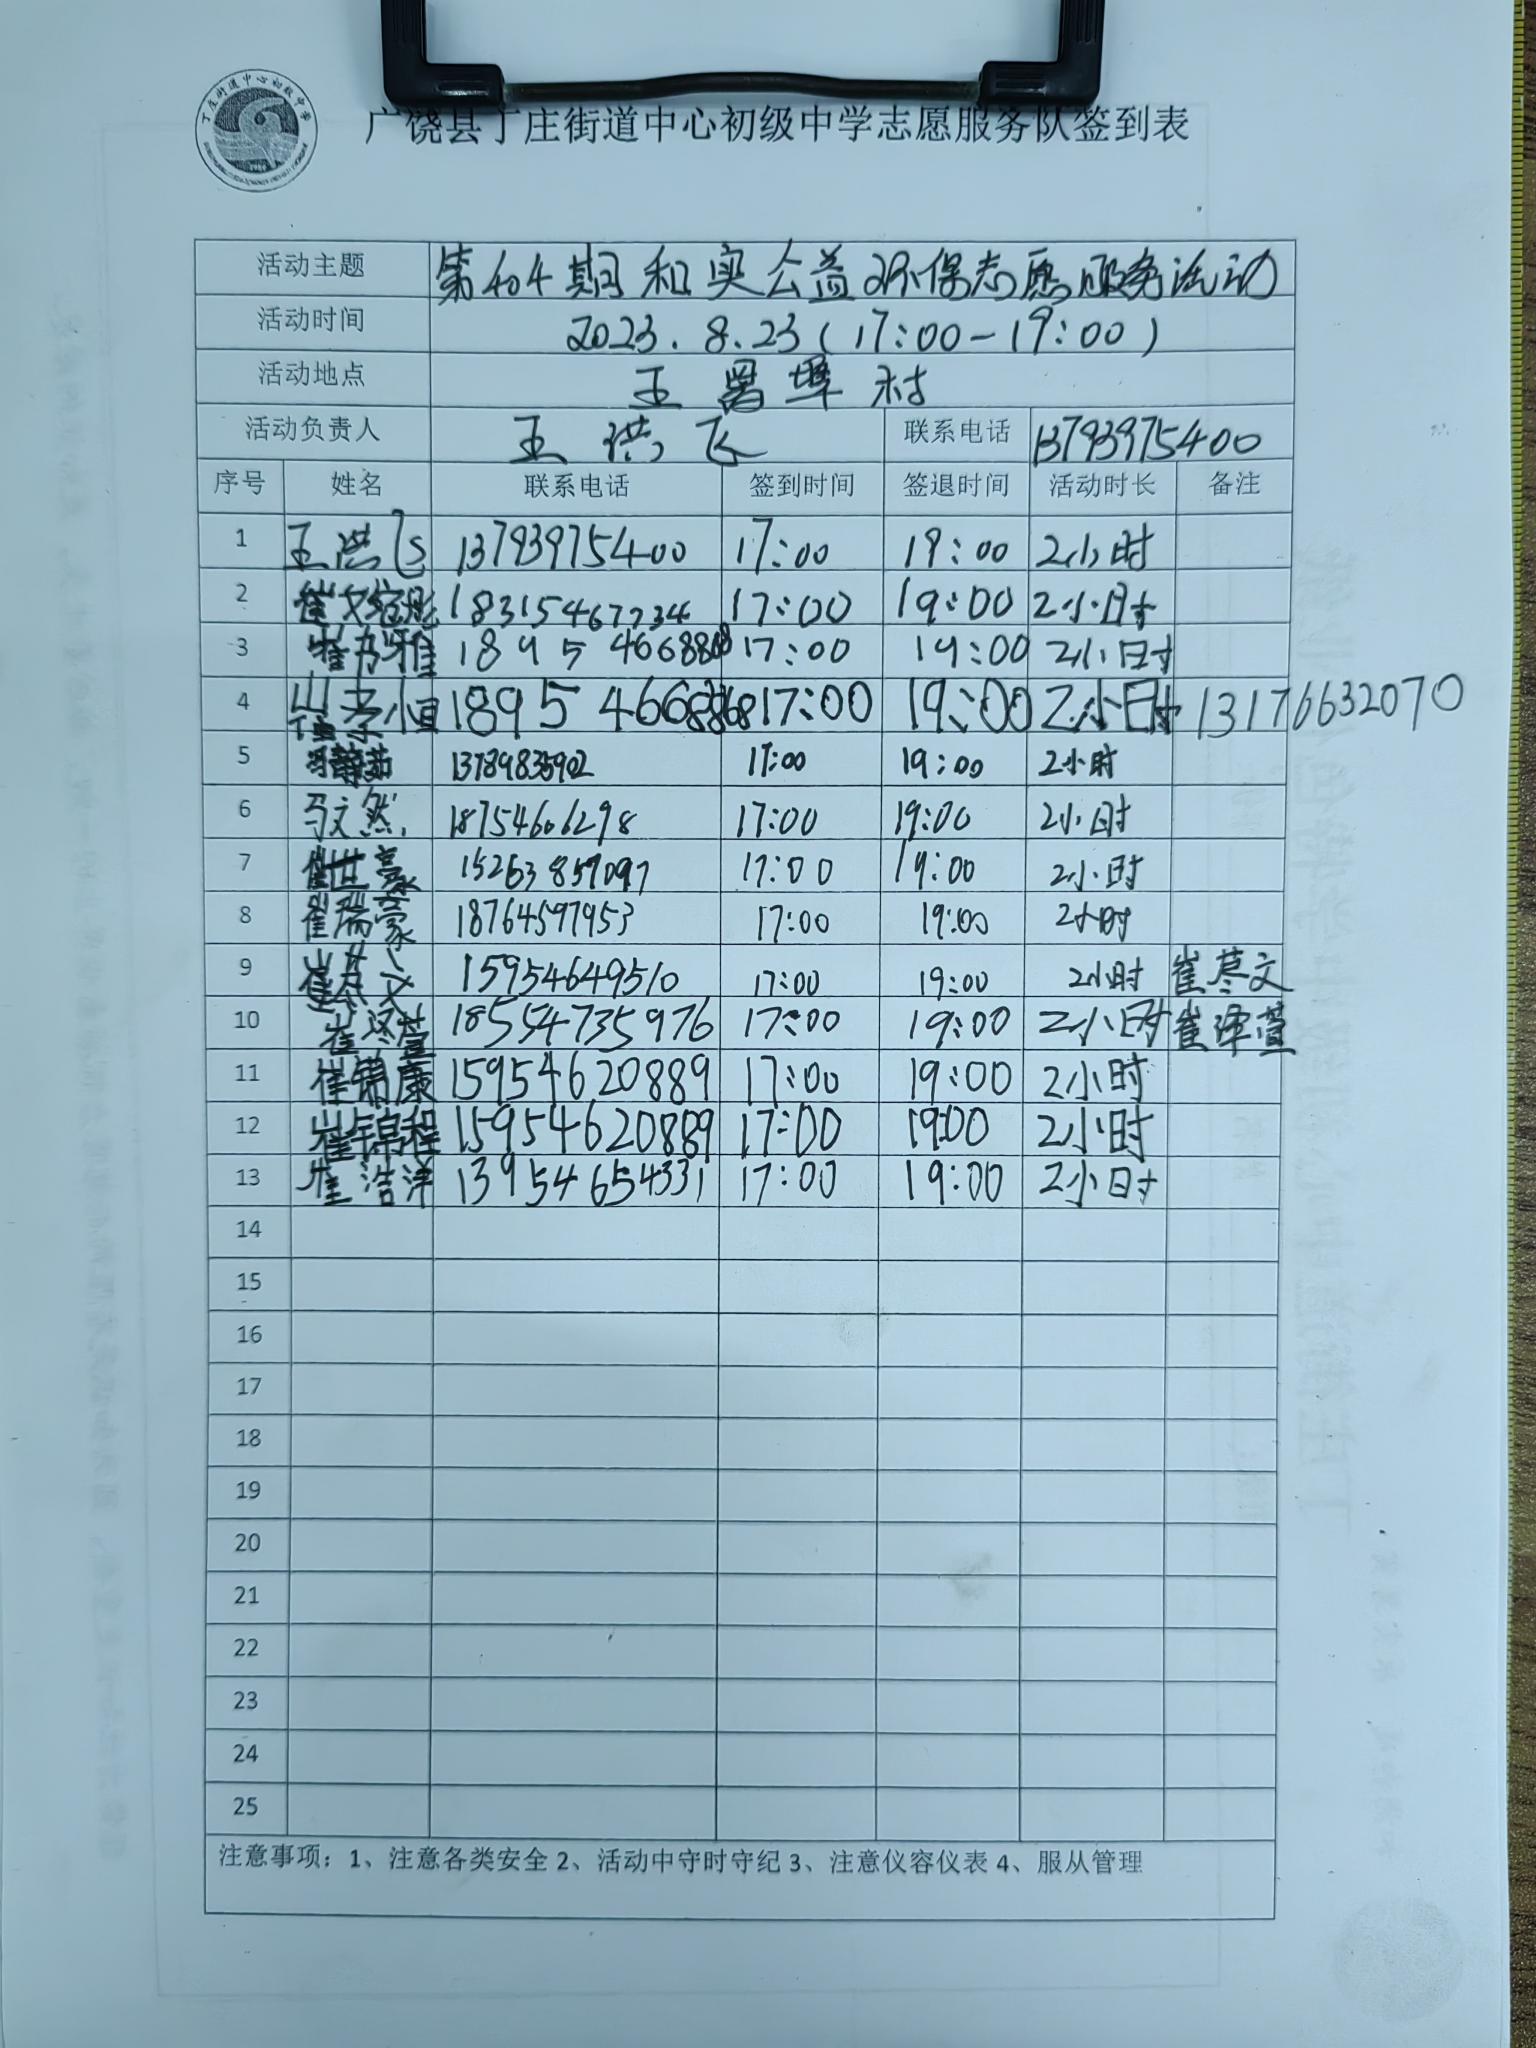 广饶县丁庄街道中心初级中学志愿服务队签到表
活动主题 第404期和实公益环保志愿服务活动
活动时间 2023.8.23(17:00-19:00)
活动地点 王署埠村
活动负责人 王洪飞 联系电话 13793975400
序号 姓名 联系电话 签到时间 签退时间 活动时长 备注
1 王洪飞 13793975400 17:00 19:00 2小时
2 18315467734 17:00 19:00 2小时
3 17:00 19:00 2小时
4 17:00 19:00 2小时 13176632070
5 17:00 19:00 2小时
6 马文然 18754606298 17:00 19:00 2小时
7 崔世豪 15263857097 17:00 19:00 2小时
8 崔瑞豪 18764597953 17:00 19:00 2小时
9 15954649510 17:00 19:00 2小时
10 崔泽萱 18554735976 17:00 19:00 2小时 崔泽萱
11 15954620889 17:00 19:00 2小时
12 崔锦程 15954620889 17:00 19:00 2小时
13 崔浩洋 13954654331 17:00 19:00 2小时
14
15
16
17
18
19
20
21
22
23
24
25
注意事项：1、注意各类安全 2、活动中守时守纪 3、注意仪容仪表 4、服从管理